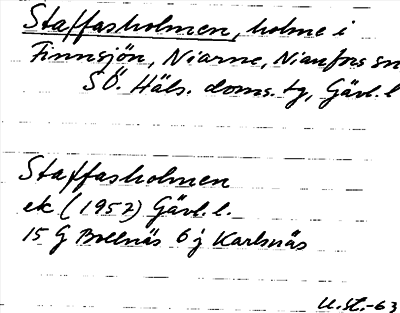 Staffasholmen, holme i
Finnsjön, Niarne, Nianfors sn
SÖ. Häls. doms. tg, Gävl. l
Staffasholmen
ek (1957) Gävl. l.
15 G Bollnäs 6 j Karlsnäs
U.St.-63